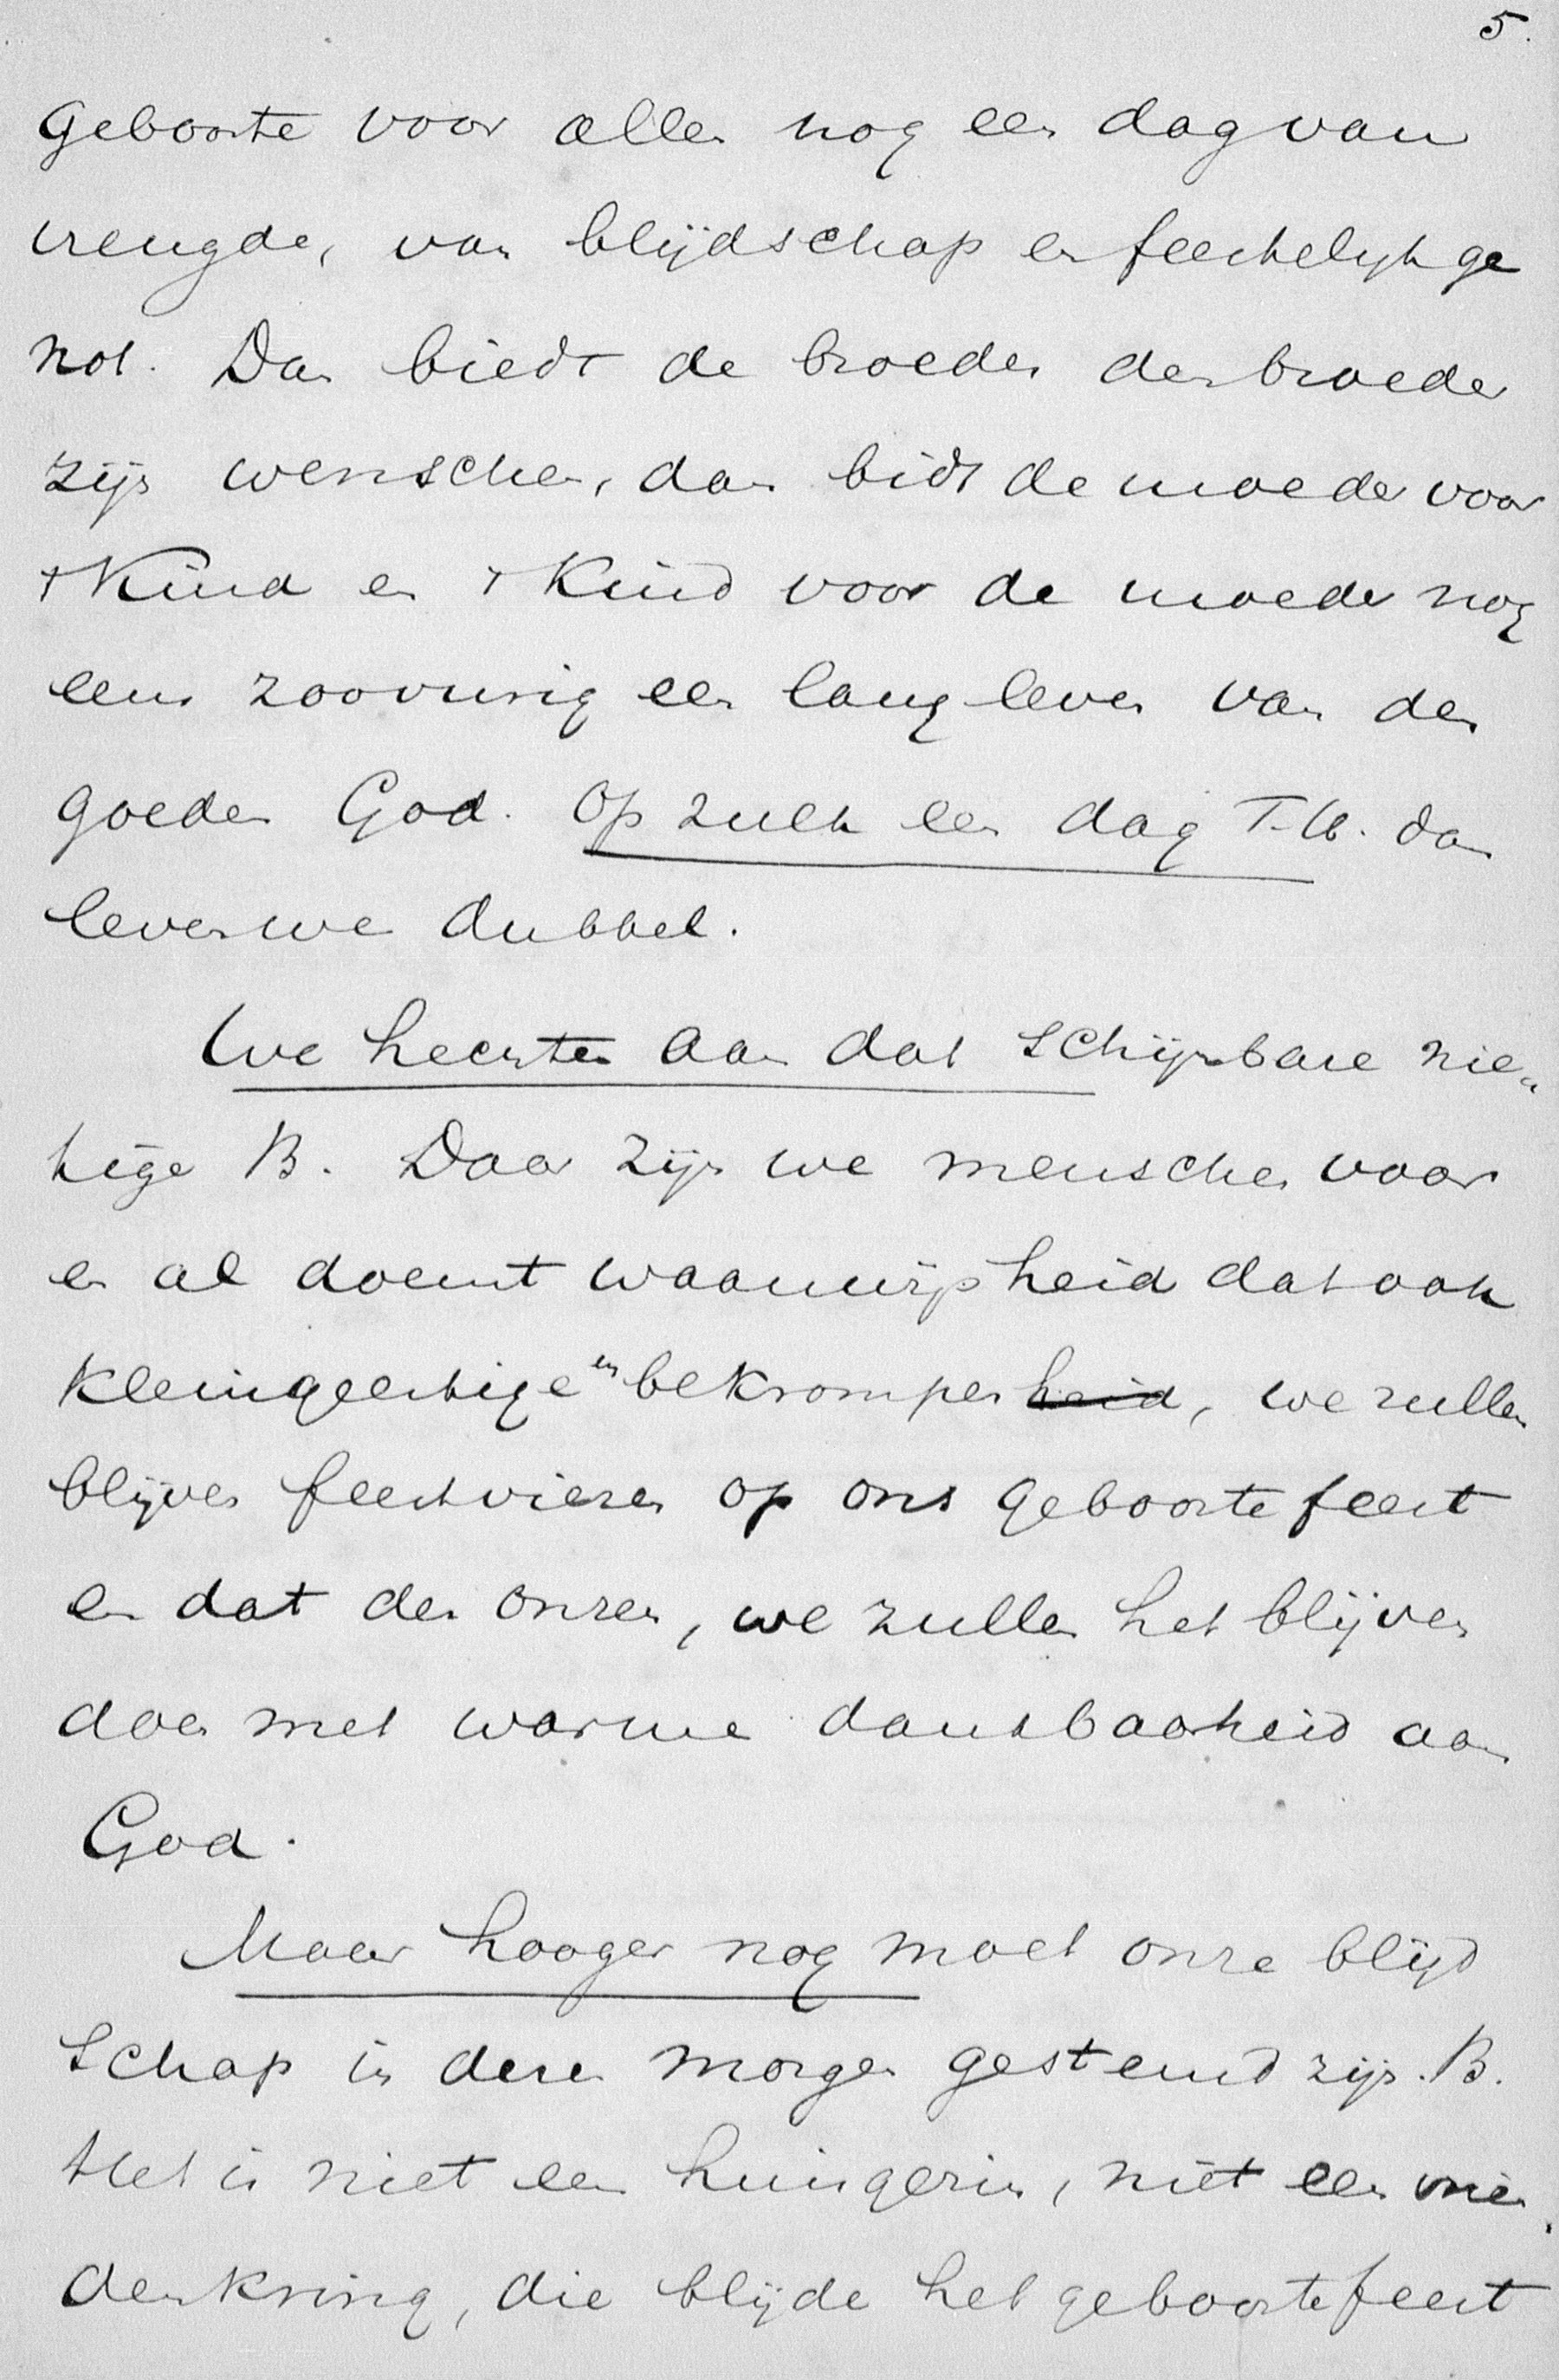 5.
geboorte voor allen nog een dag van
vreugde, van blijdschap en feestelijk ge
not. Dan biedt de broeder den broeder
zijn wenschen, dan bidt de moeder voor
't Kind en 't Kind voor de moeder nog
eens zoo vurig een lang leven van den
goeden God. Op zulk een dag T.A. dan
leven we dubbel.
We hechten aan dat schijnbare nie„
tige B. Daar zijn we menschen voor
en al doemt waanwijsheid dat ook
kleingeestig en bekrompen heid, we zullen
blijven feestvieren op ons geboortefeest
en dat der onzen, we zullen het blijven
doen met warme dankbaarheid aan
God.
Maar hooger nog moet onze blijd
schap in dezen morgen gestemd zijn. B.
Het is niet een huisgezin, niet een vrien
denkring, die blijde het geboortefeest